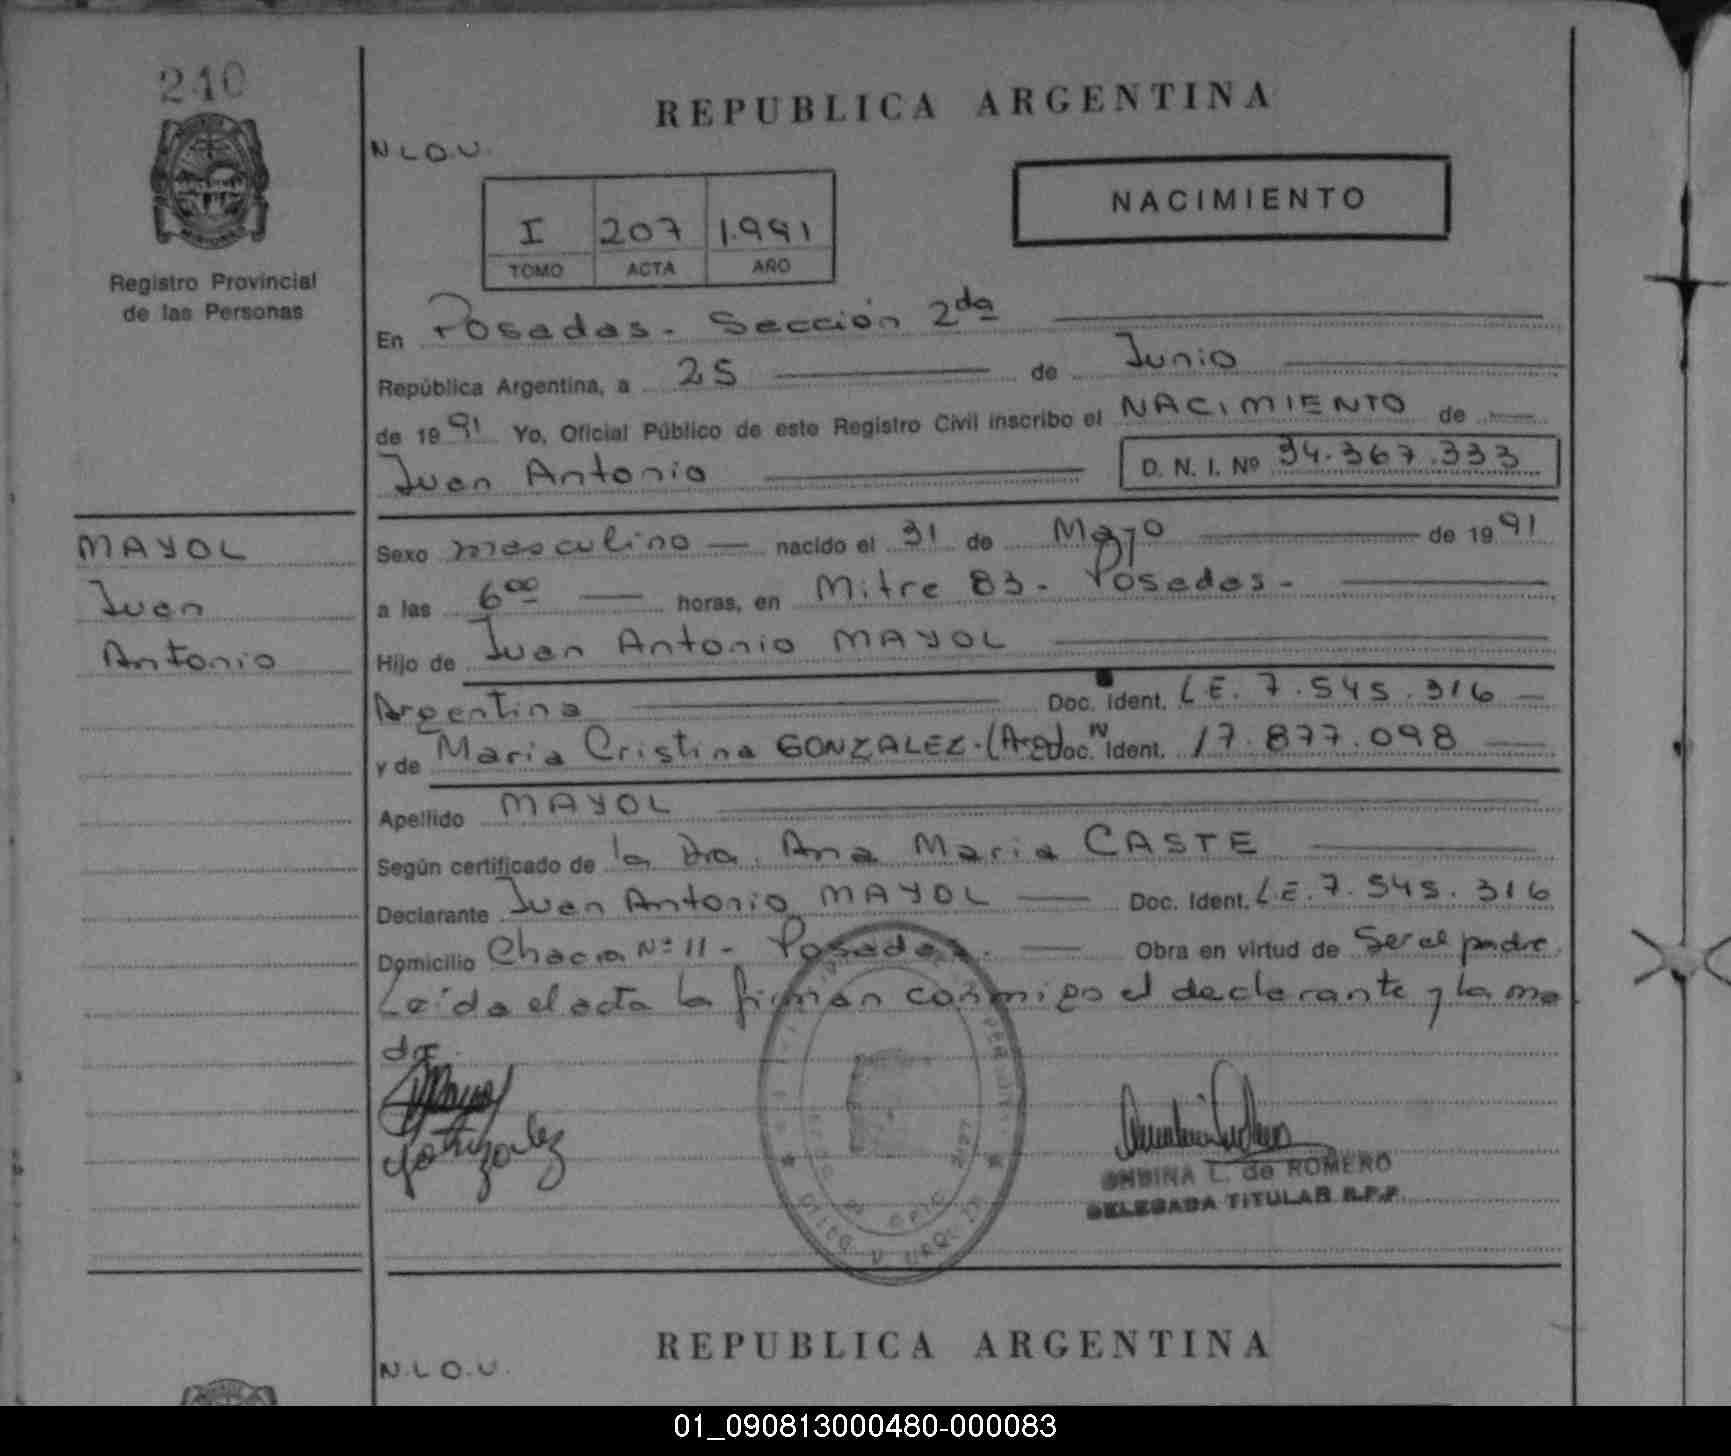 240
REPUBLICA ARGENTINA
N.L.O.U.
NACIMIENTO
I 207 1.991
TOMO ACTA AÑO
Registro Provincial
de las Personas
En Posadas - Sección 2da
República Argentina, a 25 de Junio
de 1991 Yo, Oficial Público de este Registro Civil inscribo el NACIMIENTO de
Juan Antonio D. N. I. Nº 34.367.333
MAYOL
Juan
Antonio
Sexo masculino nacido el 31 de Mayo de 1991
a las 6 00 horas, en Mitre 83 - Posadas -
Hijo de Juan Antonio MAYOL
Argentina Doc. Ident. L.E. 7.545.316
y de Maria Cristina GONZALEZ - (Arg) Doc. Ident. 17.877.098
Apellido MAYOL
Según certificado de la Dra. Ana Maria CASTE
Declarante Juan Antonio MAYOL Doc. Ident. L.E. 7.545.316
Domicilio Chacra Nº 11 - Posadas. Obra en virtud de Ser el padre.
Leída el acta la firman conmigo el declarante y la ma
dre.
Gonzalez
ONDINA L. de ROMERO
DELEGADA TITULAR R.P.P.
REPUBLICA ARGENTINA
N.L.O.U.
01_090813000480-000083